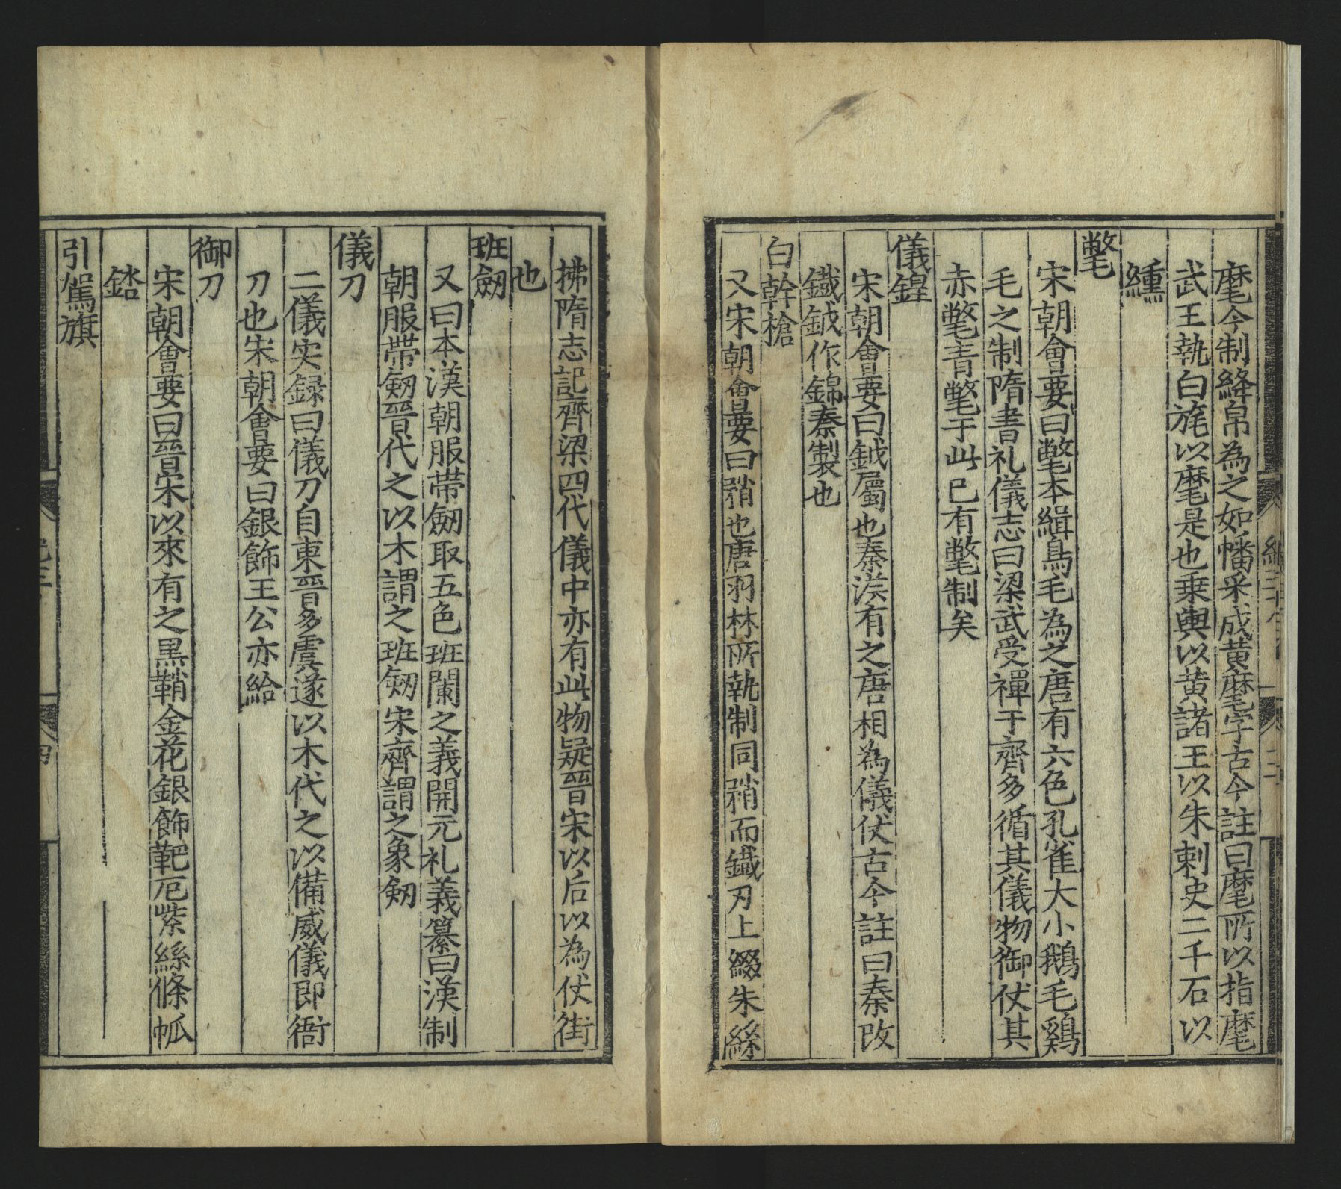 麾今制絳帛為之如幡采成黄麾字古今註曰麾所以指麾
武王執白旄以麾是也乗輿以黄諸王以朱刺史二千石以
纁
氅
宋朝會要曰氅本緝鳥毛為之唐有六色孔雀大小鵝毛鷄
毛之制隋書礼儀志曰梁武受禪于齊多循其儀物御仗其
赤氅青氅于此已有氅制矣
儀鍠
宋朝會要曰鉞屬也秦漢有之唐相為儀仗古今註曰秦改
鐵鉞作錦秦製也
白幹槍
又宋朝會要曰矟也唐羽林所執制同矟而鐵刃上綴朱絲
拂隋志記齊梁四代儀中亦有此物疑晉宋以后以為仗街
也
班劒
又曰本漢朝服帶劒取五色班闌之義開元礼義纂曰漢制
朝服帶劒晉代之以木謂之班劒宋齊謂之象劒
儀刀
二儀实録曰儀刀自東晉多虞遂以木代之以備威儀即衙
刀也宋朝會要曰銀飾王公亦給
御刀
宋朝會要曰晉宋以來有之黒鞘金花銀飾靶厄紫絲絛㡓
錔
引駕旗